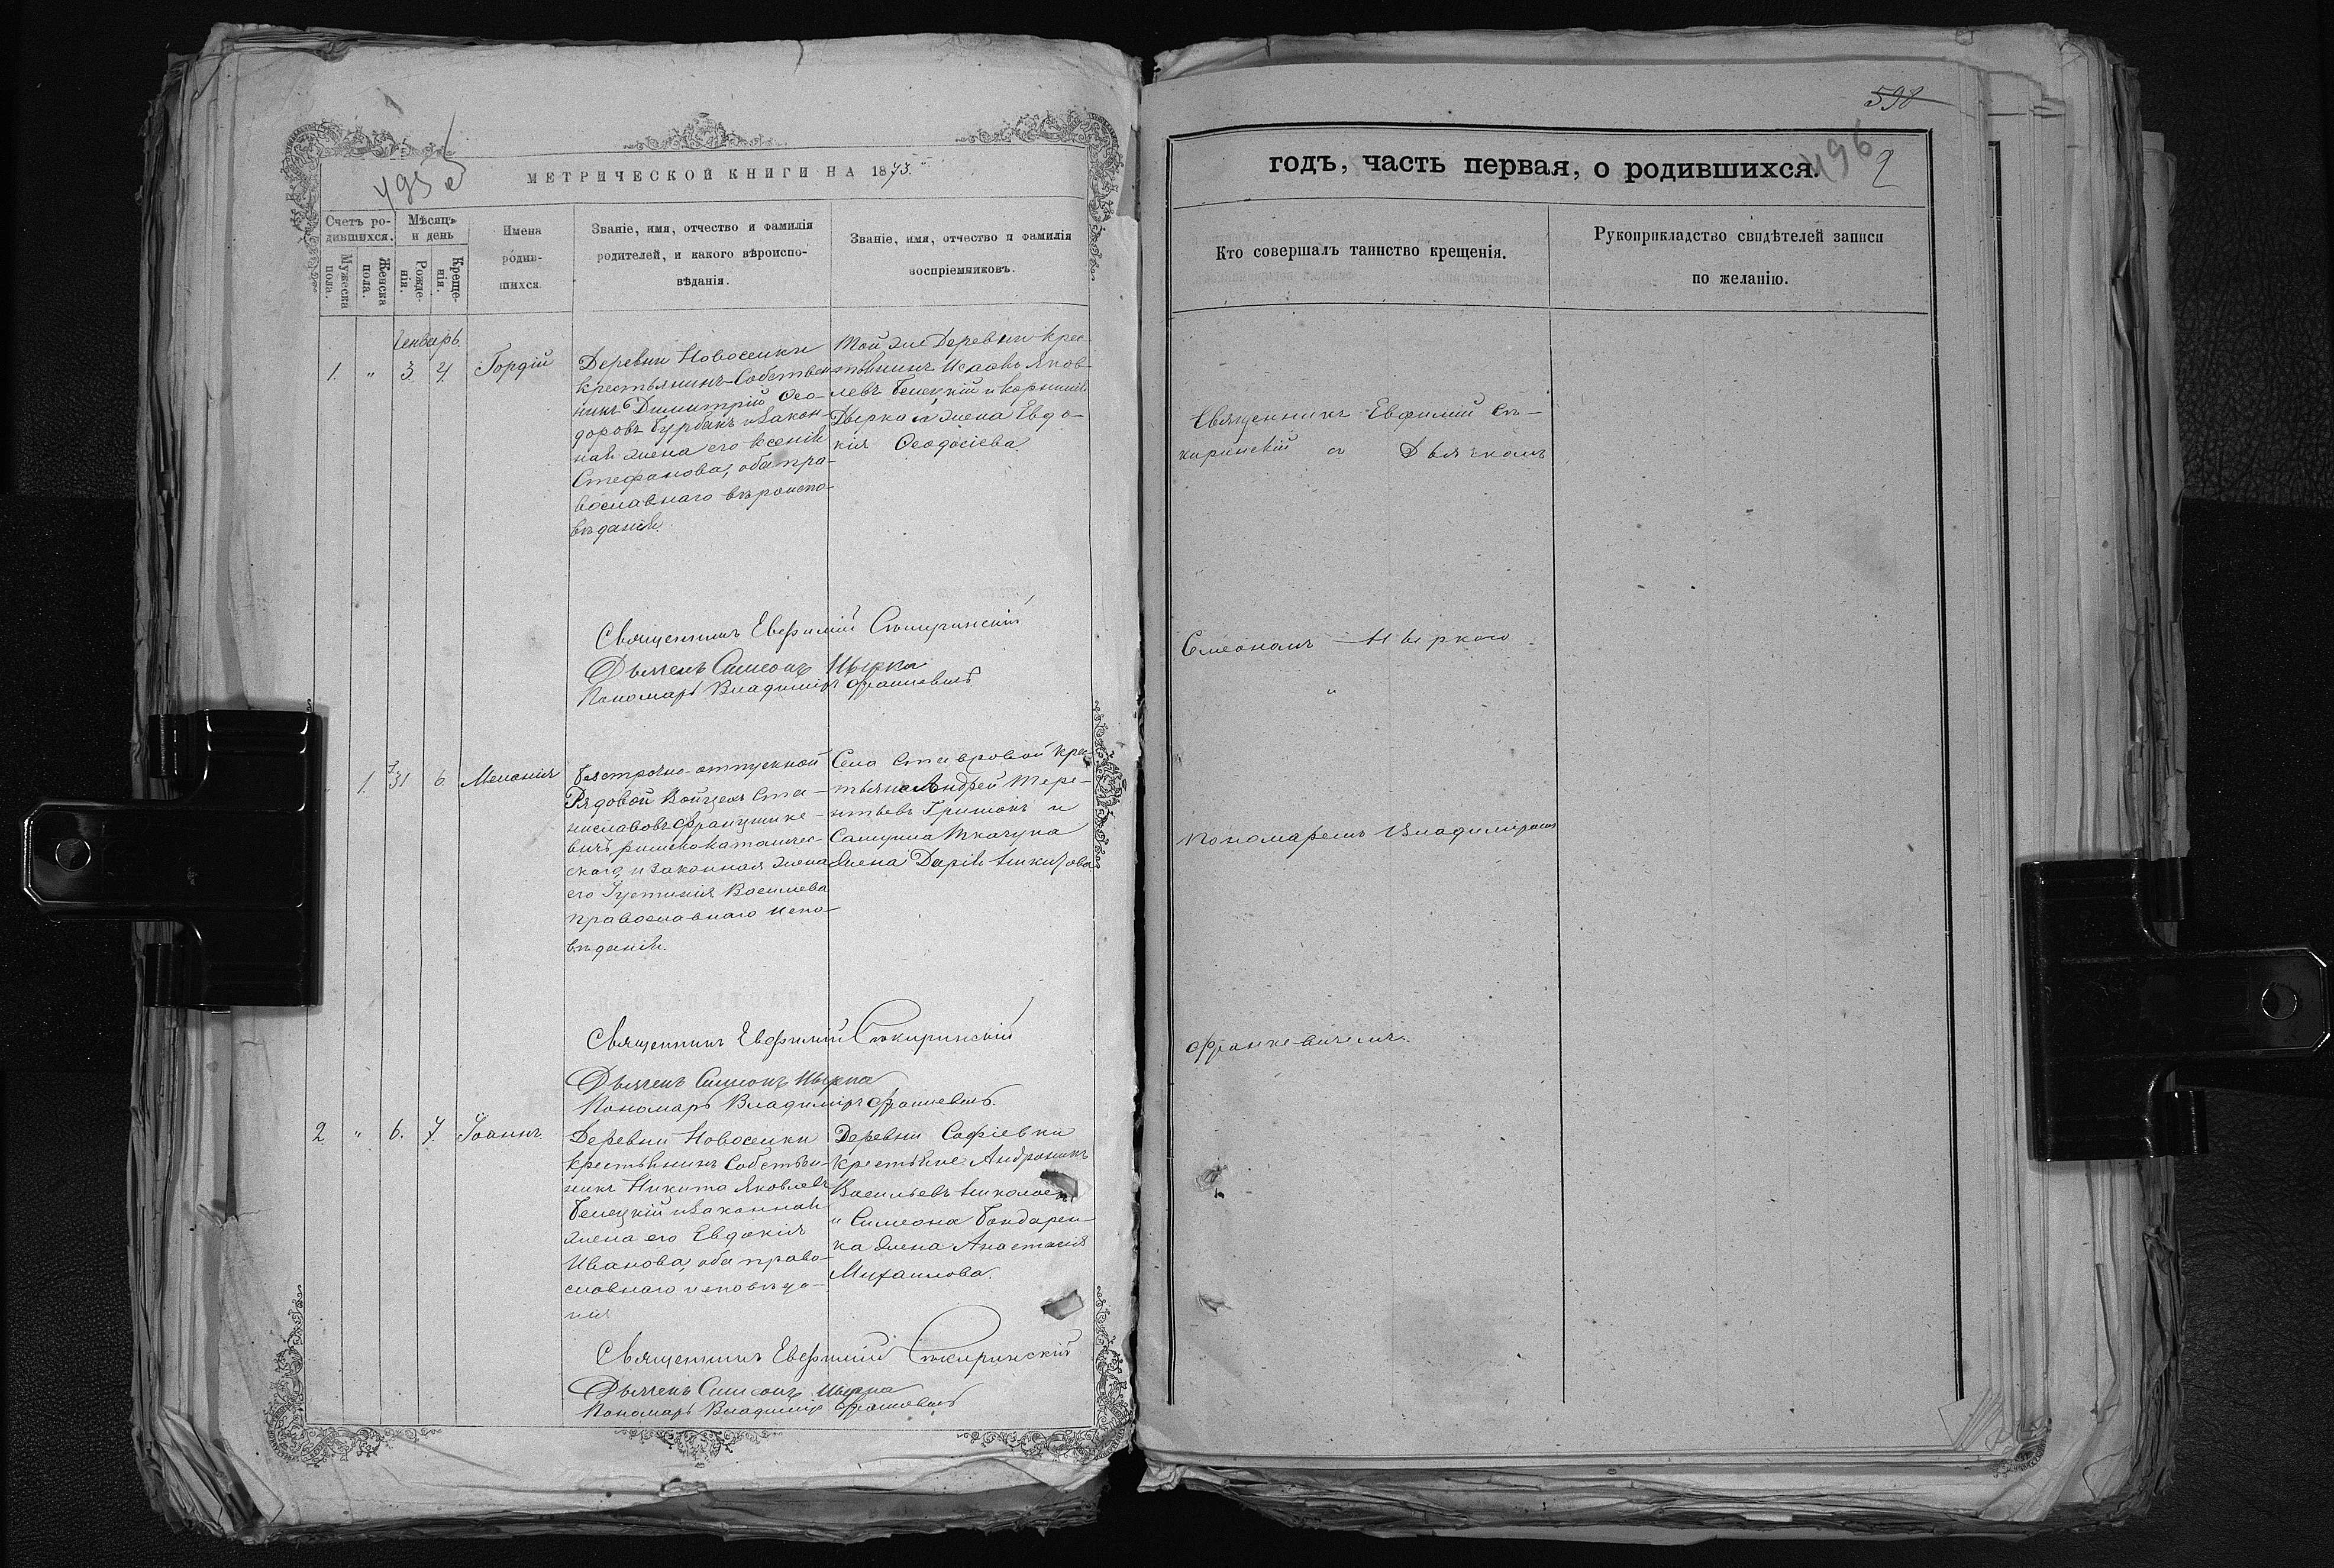 МЕТРИЧЕСКОЙ КНИГИ НА 1873.
Счетъ ро-
дившихся.
Мужеска
пола.
Женска
пола.
Мѣсяцъ
и день
Рожде-
нія.
Креще-
нія.
Имена
родив-
шихся.
Званіе, имя, отчество и фамилія
родителей, и какого вѣроиспо-
вѣданія.
Званіе, имя, отчество и фамилія
воспріемниковъ.
Генварь.
1. " 3 4. Гордій
Деревни Новоселки
крестьянинъ-Собствен-
никъ Димитрій Ѳео-
доровъ Гурбакъ и закон-
ная жена его Ксенія
Стефанова, оба пра-
вославнаго вѣроиспо-
вѣданія.
Той же Деревни крес-
тьянинъ Исаакъ Яков-
левъ Белецкій и Корнилія
жена Евдо-
кія Ѳеодосіева.
Священникъ Евфимій Сѣкиринскій
Дьячекъ Симеонъ Цырка
Пономарь Владиміръ Франкевичъ.
1. 31 6. Меланія
Безсрочно-отпускной
Рядовой Войцехъ Ста-
ниславовъ Францишке-
вичъ римскокатоличес-
каго, и законная жена
его Іустинія Василіева
православнаго испо-
вѣданія.
Села Ставровой крес-
тьяне Андрей Тере-
нтьевъ Гришокъ и
Самуила Ткачука
жена Дарія
Священникъ Евфимій Сѣкиринскій
Дьячекъ Симеонъ Цырка
Пономарь Владиміръ Франкевичъ.
2. " 6. 7. Іоаннъ.
Деревни Новоселки
крестьянинъ Собствен-
никъ Никита Яковлевъ
Белецкій и законная
жена его Евдокія
Иванова, оба право-
славнаго исповѣда-
нія
Деревни Софіевки
крестьяне Андроникъ
Васильевъ
и Симеона Бондарен-
ка жена Анастасія
Михаилова.
Священникъ Евфимій Сѣкиринскій
Дьячекъ Симеонъ Цырка
Пономарь Владиміръ Франкевичъ
598
496
2
годъ, часть первая, о родившихся.
Кто совершалъ таинство крещенія.
Рукоприкладство свидѣтелей записи
по желанію.
Священникъ Евфимій Сѣ-
киринскій съ Дьячкомъ
Симеономъ Цыркою
и
Пономаремъ Владиміромъ
Франкевичемъ.